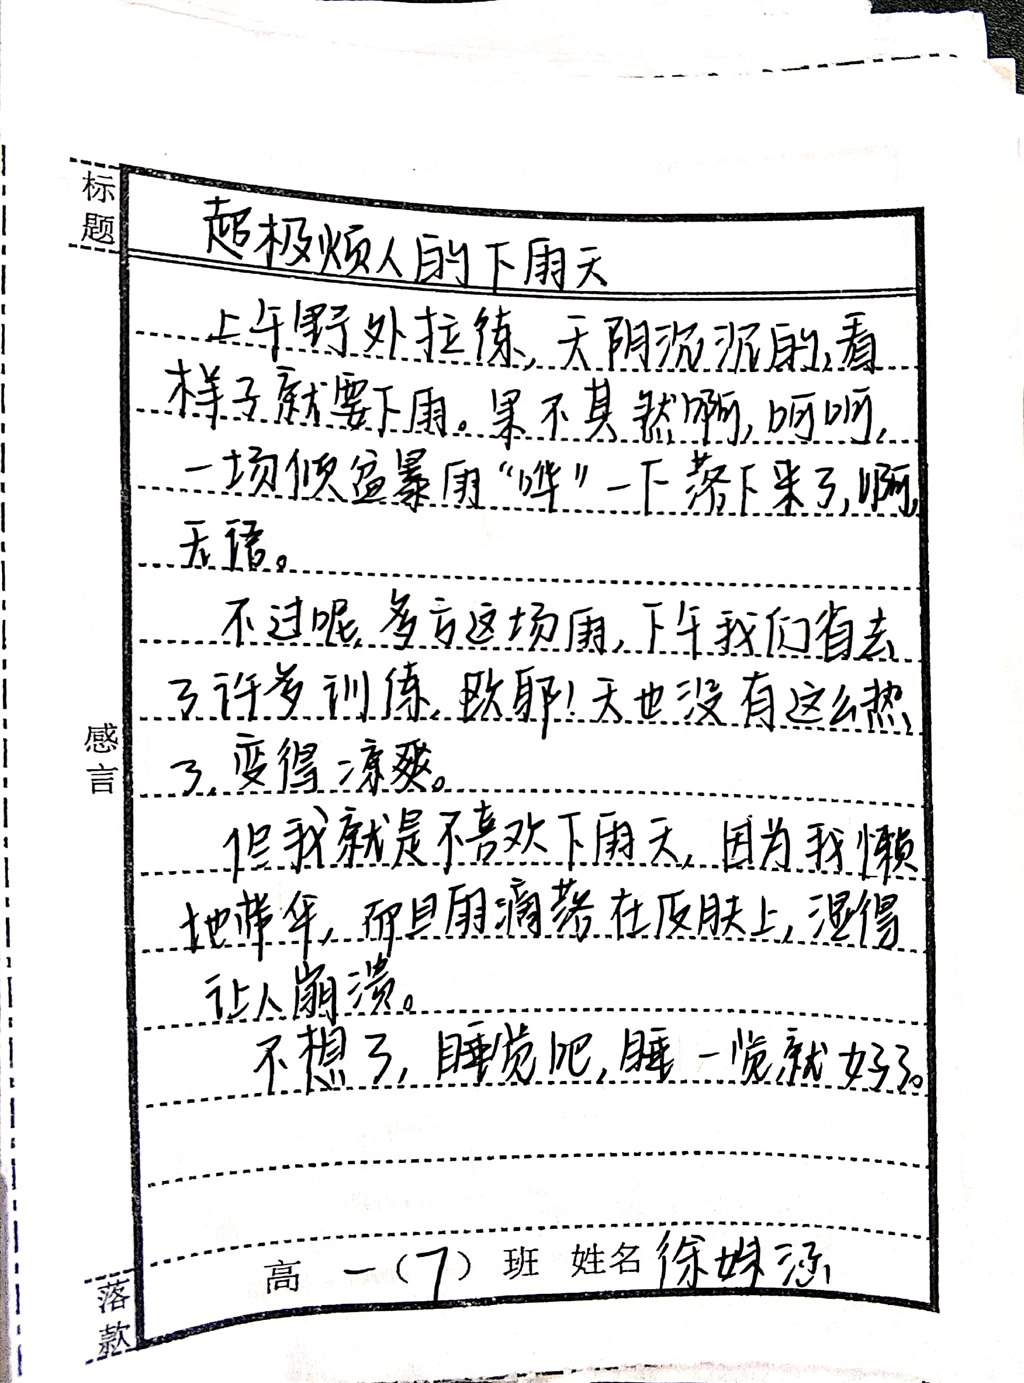 标题
超极烦人的下雨天
上午野外拉练,天阴沉沉的,看
样子就要下雨。果不其然啊,呵呵,
一场倾盆暴雨“哗”一下落下来了,啊,
无语。
不过呢,多亏这场雨,下午我们省去
了许多训练,欧耶!天也没有这么热
了,变得凉爽。
感言
但我就是不喜欢下雨天,因为我懒
地带伞,而且雨滴落在皮肤上,湿得
让人崩溃。
不想了,睡觉吧,睡一觉就好了。
落款
高 一 (7) 班 姓名 徐姝涵